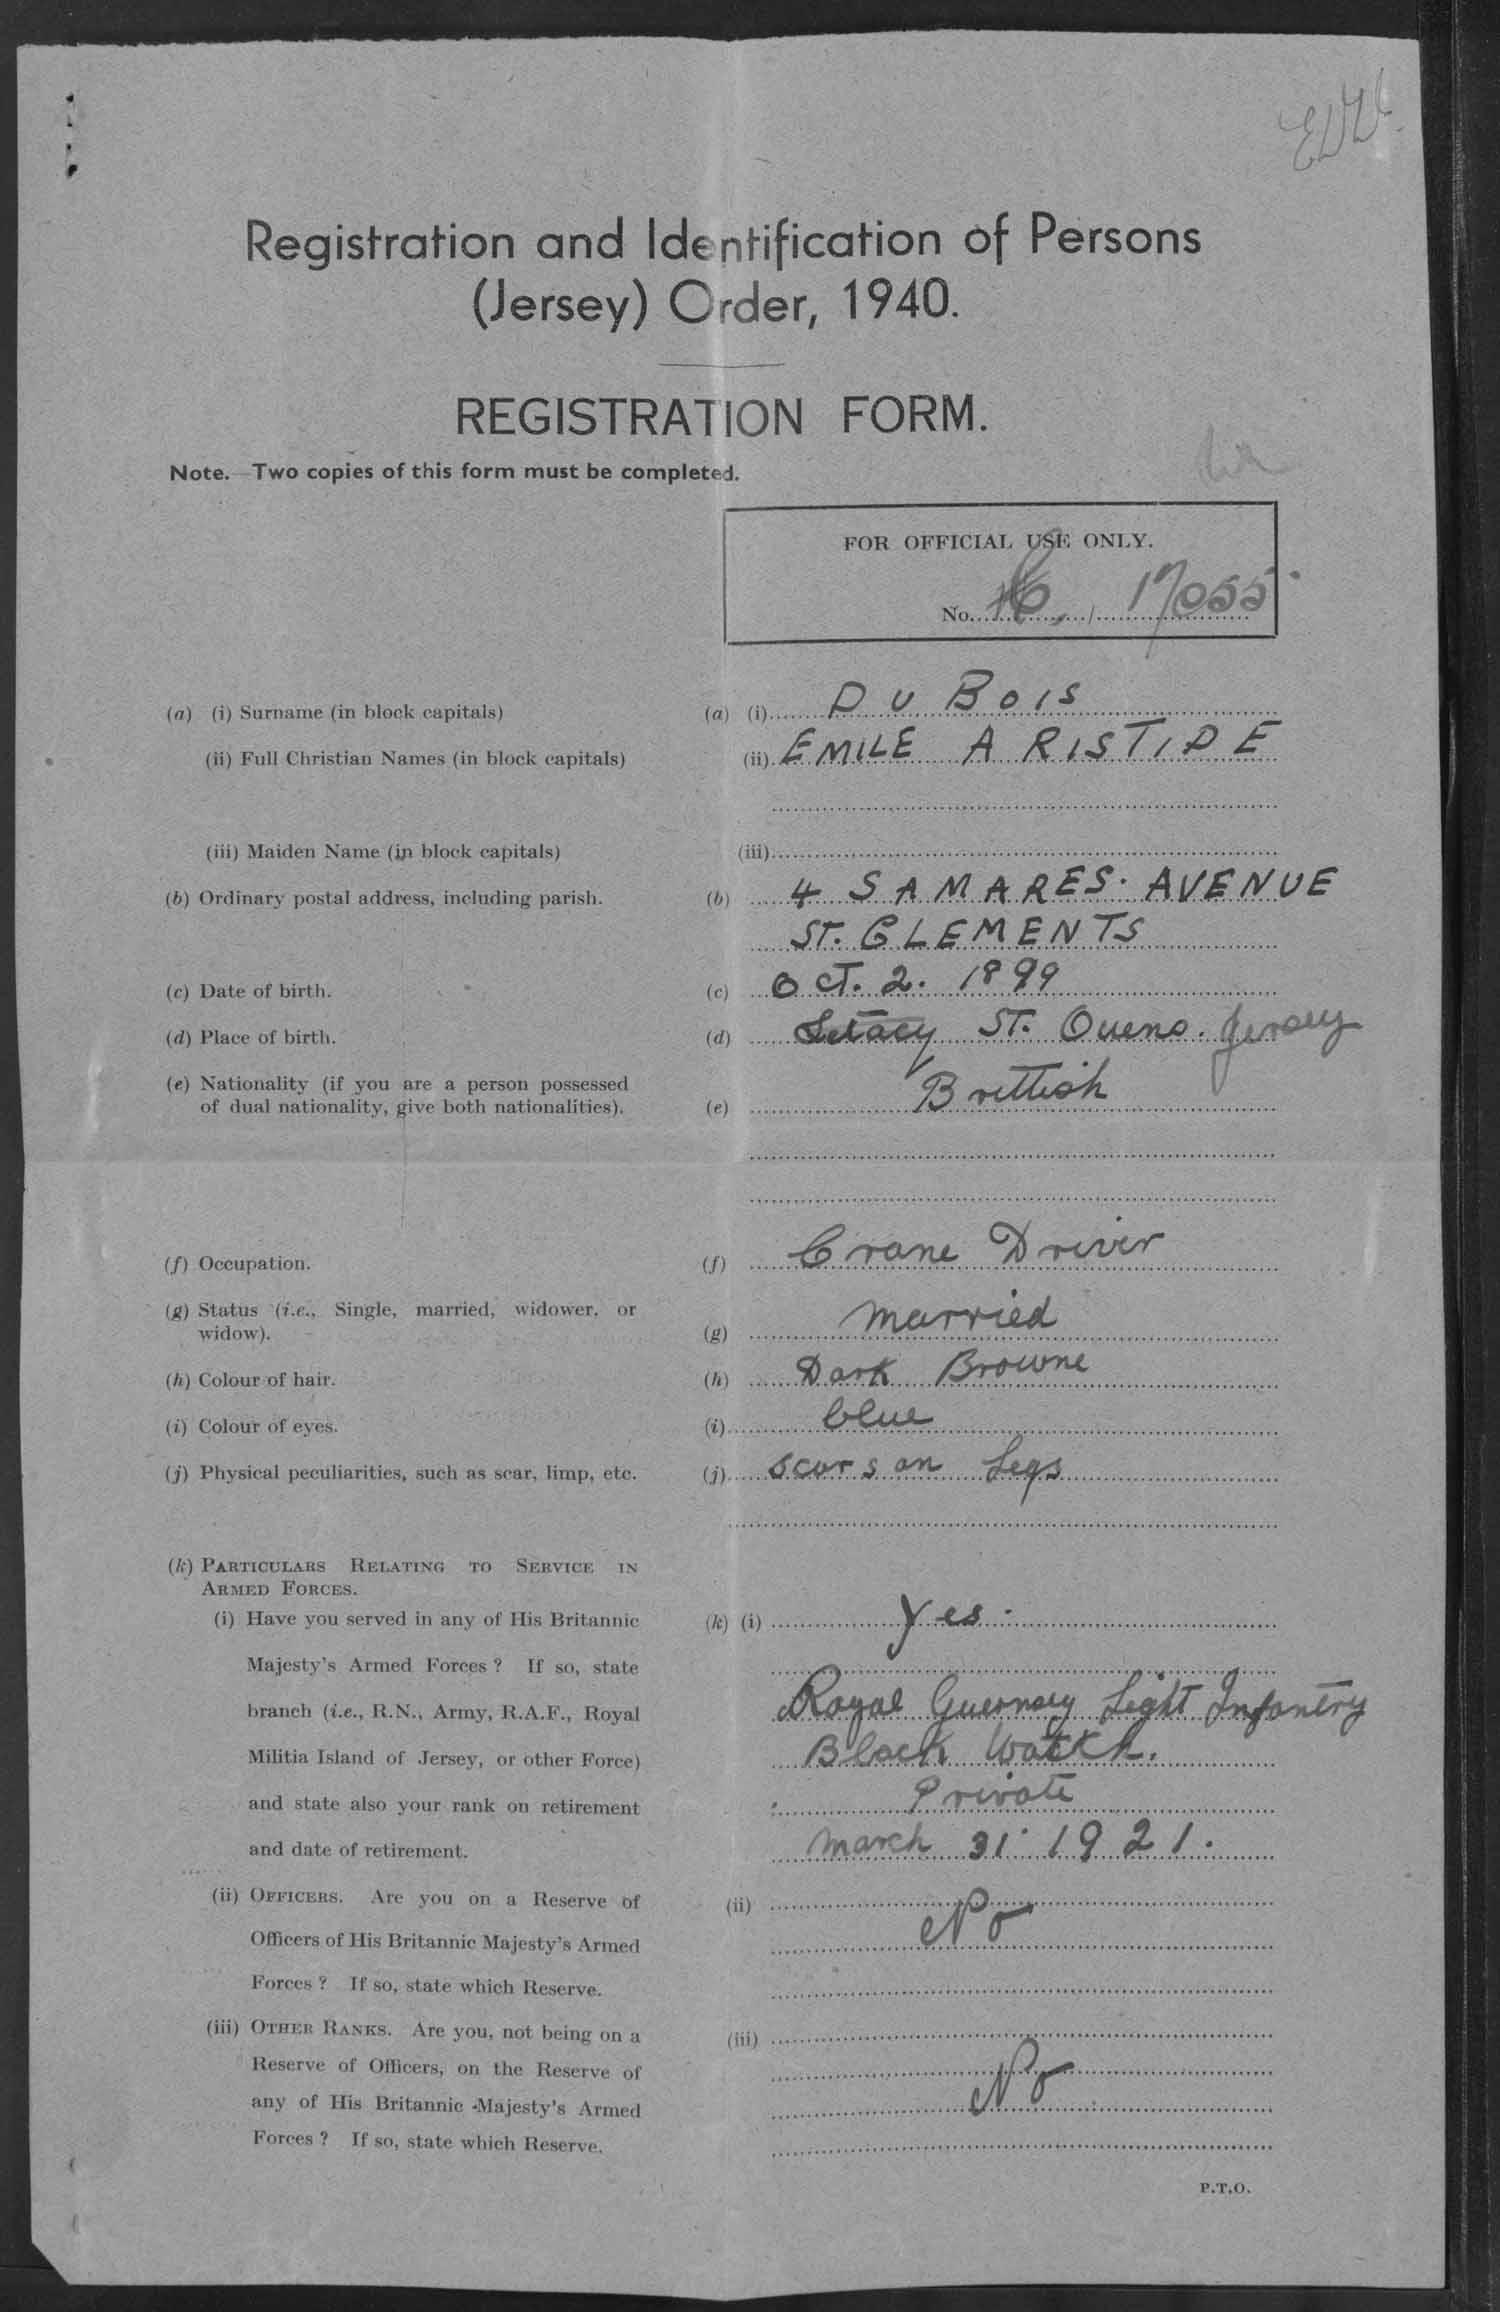 EWV.
Registration and Identification of Persons
(Jersey) Order, 1940.
REGISTRATION FORM.
Note.—Two copies of this form must be completed.
FOR OFFICIAL USE ONLY.
No. / 17055.
(a) (i) Surname (in block capitals) (a) (i) DU BOIS
(ii) Full Christian Names (in block capitals) (ii) EMILE ARISTIDE
(iii) Maiden Name (in block capitals) (iii)
(b) Ordinary postal address, including parish. (b) 4 SAMARES. AVENUE
ST. CLEMENTS
(c) Date of birth. (c) OCT. 2. 1899
(d) Place of birth. (d) ST. Ouens. Jersey
(e) Nationality (if you are a person possessed
of dual nationality, give both nationalities). (e) Brittish
(f) Occupation. (f) Crane Driver
(g) Status (i.e., Single, married, widower, or
widow). (g) married
(h) Colour of hair. (h) Dark Browne
(i) Colour of eyes. (i) blue
(j) Physical peculiarities, such as scar, limp, etc. (j) scars on Legs
(k) PARTICULARS RELATING TO SERVICE IN
ARMED FORCES.
(i) Have you served in any of His Britannic (k) (i) Yes.
Majesty's Armed Forces? If so, state
branch (i.e., R.N., Army, R.A.F., Royal Royal Guernsey Light Infantry
Militia Island of Jersey, or other Force) Black Watch.
and state also your rank on retirement Private
and date of retirement. March 31. 1921.
(ii) OFFICERS. Are you on a Reserve of (ii)
Officers of His Britannic Majesty's Armed No
Forces? If so, state which Reserve.
(iii) OTHER RANKS. Are you, not being on a (iii)
Reserve of Officers, on the Reserve of
any of His Britannic Majesty's Armed No
Forces? If so, state which Reserve.
P.T.O.